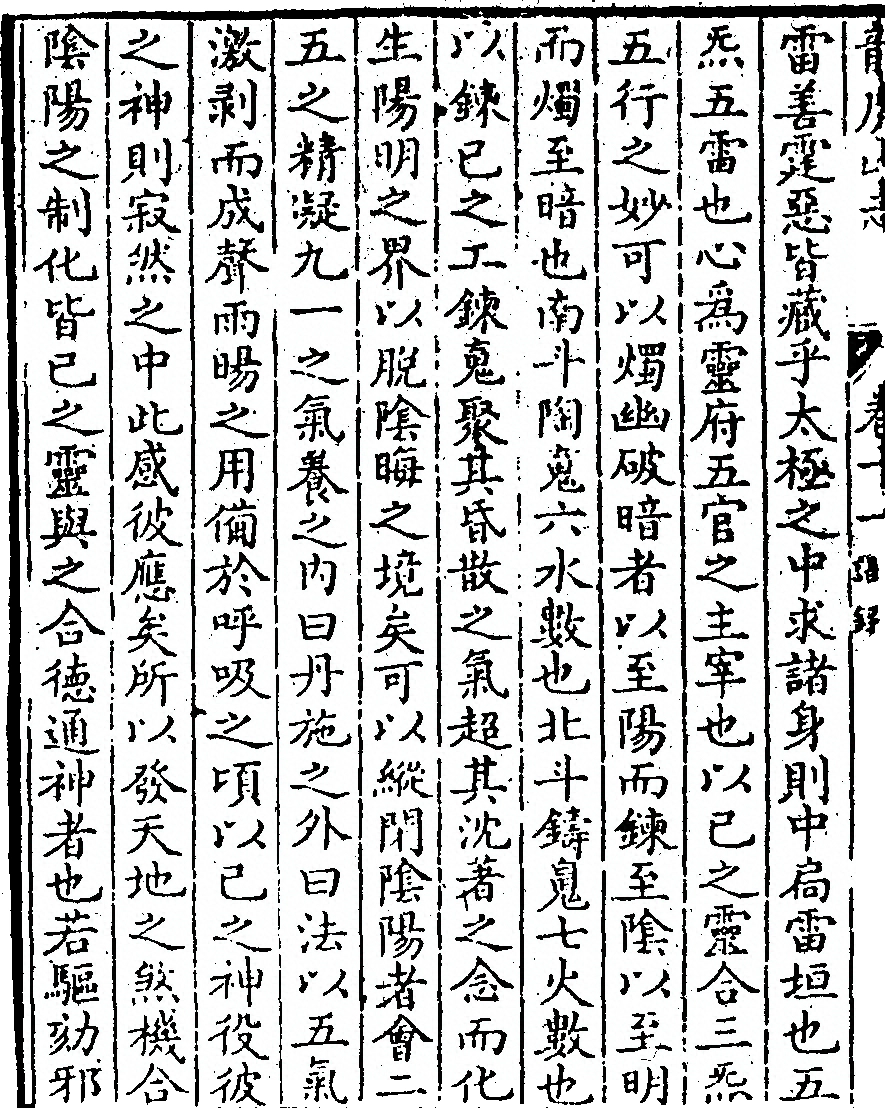 卷十一
雷善霆惡皆藏乎太極之中求諸身則中扃雷垣也五
炁五雷也心爲靈府五官之主宰也以己之靈合三炁
五行之妙可以燭幽破暗者以至陽而鍊至陰以至明
而燭至暗也南斗陶䰟六水數也北斗鑄鬼七火數也
以鍊己之工鍊䰟聚其昏散之氣超其沈著之念而化
生陽明之界以脫陰晦之境矣可以縱閉陰陽者會二
五之精凝九一之氣養之內曰丹施之外曰法以五氣
激剥而成聲雨暘之用備於呼吸之頃以己之神役彼
之神則寂然之中此感彼應矣所以發天地之煞機合
陰陽之制化皆已之靈與之合德通神者也若驅劾邪